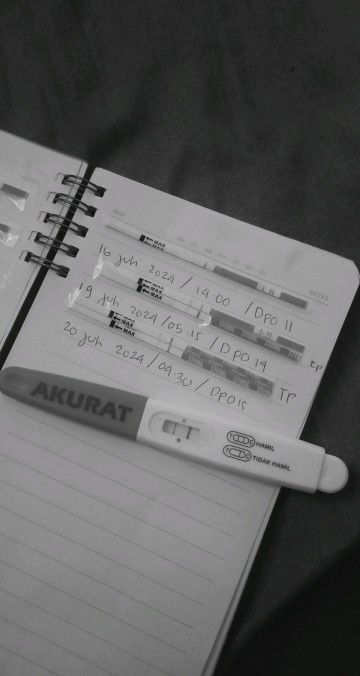 DATE
NOTES
MAX
16 Juh 2024 / 14.00 / DPO 11
MAX
tp
19 Juh 2024 / 05.15 / DPO 14
MAX
TP
20 Juh 2024 / 04.30 / DPO 15
AKURAT
HAMIL
TIDAK HAMIL